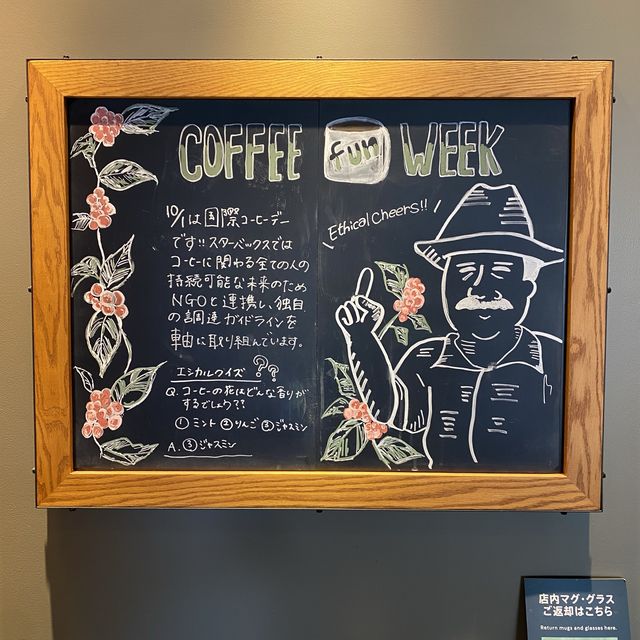 COFFEE fun WEEK
10/1は国際コーヒーデー
です!! スターバックスでは
コーヒーに関わる全ての人の
持続可能な未来のため
NGOと連携し、独自
の調達ガイドラインを
軸に取り組んでいます。
エシカルクイズ??
Q. コーヒーの花はどんな香りが
するでしょう??
①ミント ②りんご ③ジャスミン
A. ③ジャスミン
Ethical Cheers!!
店内マグ・グラス
ご返却はこちら
Return mugs and glasses here.